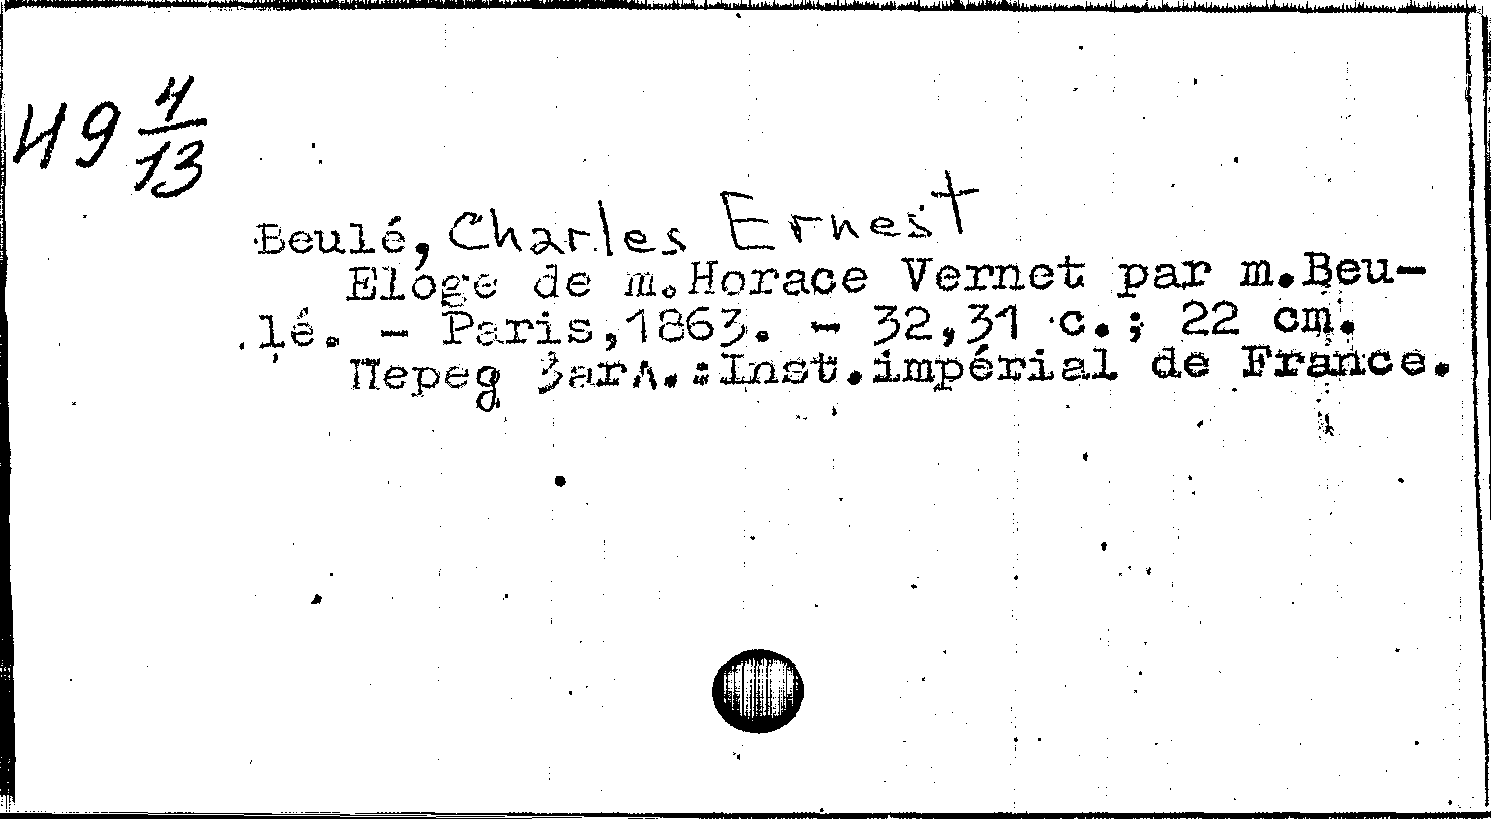 49 4/13
Beulé, Charles Ernest
Eloge de m.Horace Vernet par m.Beu-
lé. - Paris,1863. - 32,31 c.; 22 cm.
Перед загл.:Inst.impérial de France.